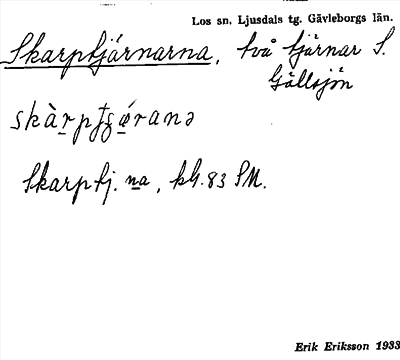 Los sn. Ljusdals tg. Gävleborgs län.
Skarptjärnarna, två tjärnar S.
Gällsjön
Skarptj. na, kbl. 83 SM.
Erik Eriksson 1933